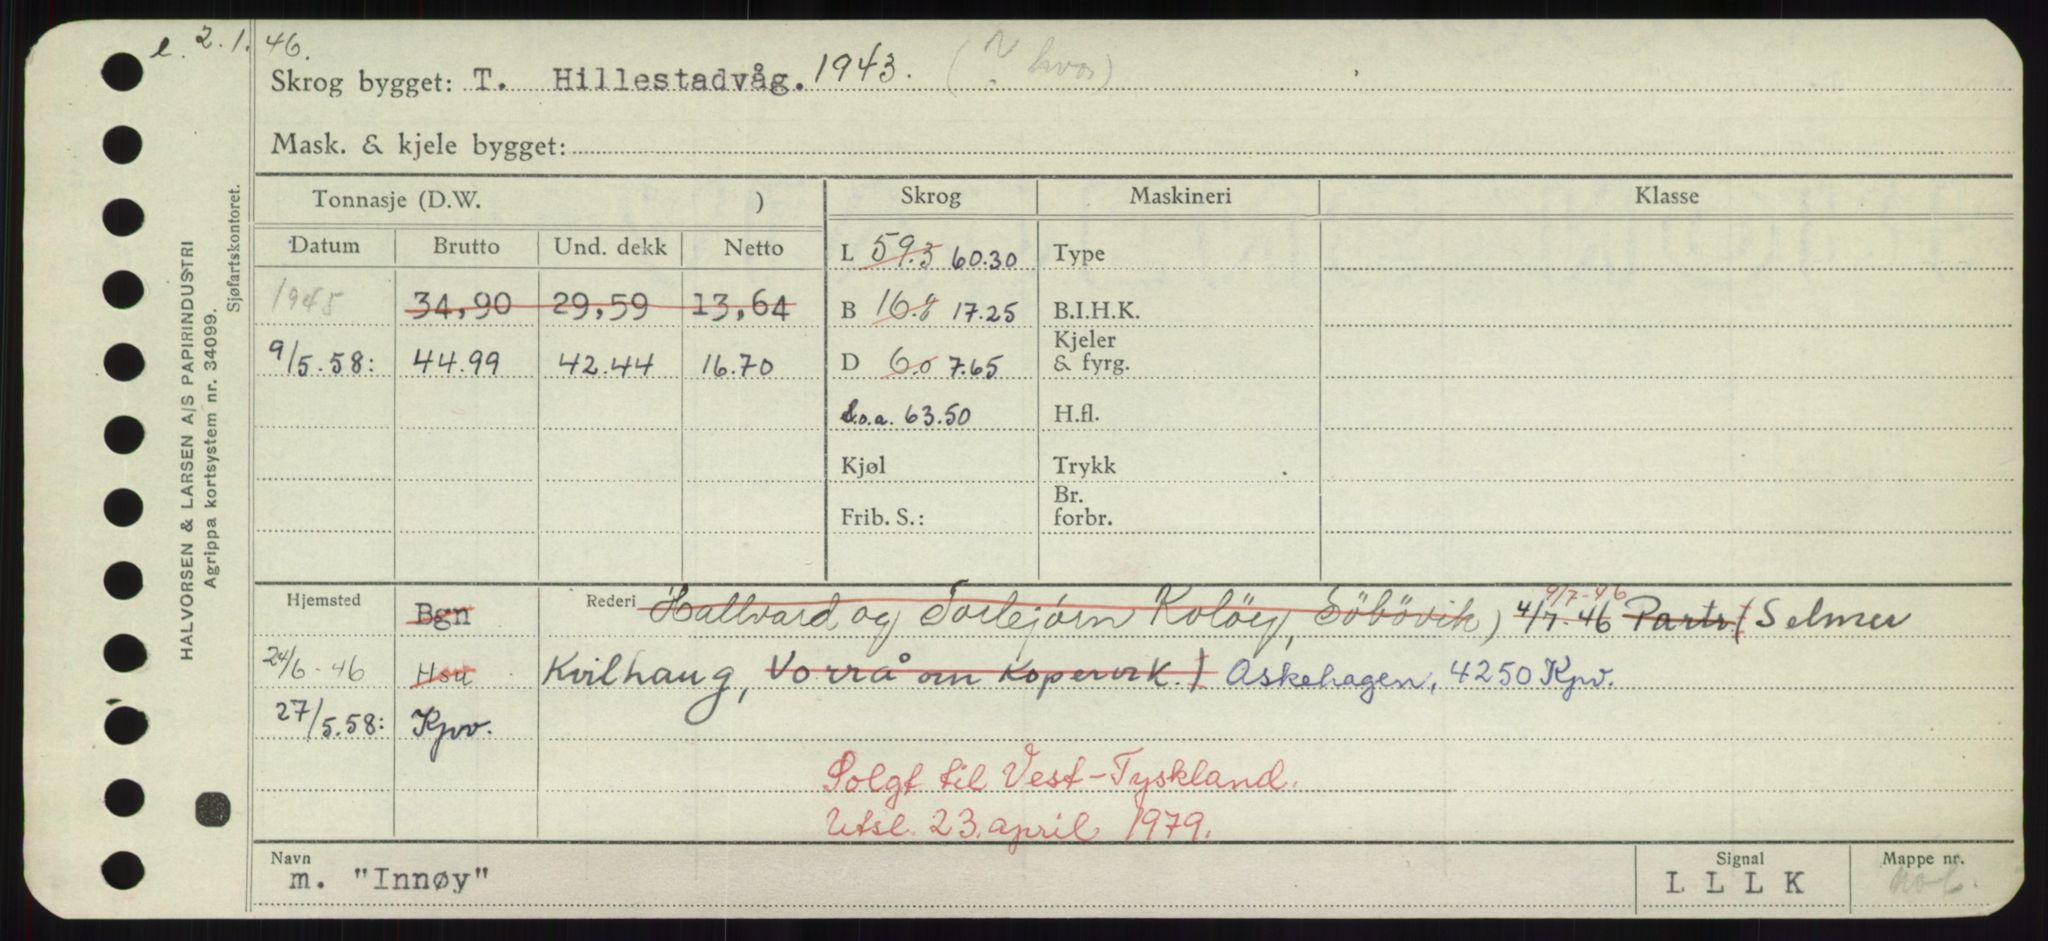 e. 2.1.46.
Skrog bygget: T. Hillestadvåg. 1943. (? hvor)
Mask. & kjele bygget:
Tonnasje (D.W. ) Skrog Maskineri Klasse
Datum Brutto Und. dekk Netto
L 59.5 60.30 Type
1945 34,90 29,59 13,64 B 16.8 17.25 B.I.H.K.
Kjeler
9/5.58: 44.99 42.44 16.70 D 6.0 7.65 & fyrg.
L.o.a. 63.50 H.fl.
Kjøl Trykk
Br.
Frib. S.: forbr.
9/7-46
Hjemsted Bgn Rederi Hallvard og Torbjørn Koløy, Søbøvik) 4/7.46 Partr. (Selmer
24/6-46 Hsu Kvilhaug, Vorrå om Kopervik.) Askehagen, 4250 Kpv.
27/5.58: Kpv.
Solgt til Vest-Tyskland.
Utsl. 23. april 1979.
Navn Signal Mappe nr.
m. "Innøy" L L L K
HALVORSEN & LARSEN A/S PAPIRINDUSTRI
Agrippa kortsystem nr. 34099.
Sjøfartskontoret.